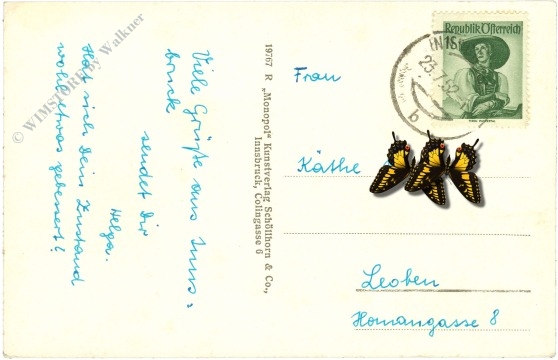 Viele Grüße aus Inns-
bruck
sendet Dir
Helga.
Hat sich Dein Zustand
wohl etwas gebessert?
19767 R „Monopol" Kunstverlag Schöllhorn & Co.,
Innsbruck, Colingasse 6
Republik Österreich
INNS
23.7.52
b
Frau
Käthe
Leoben
Homangasse 8
© WIMSTORE by Walkner